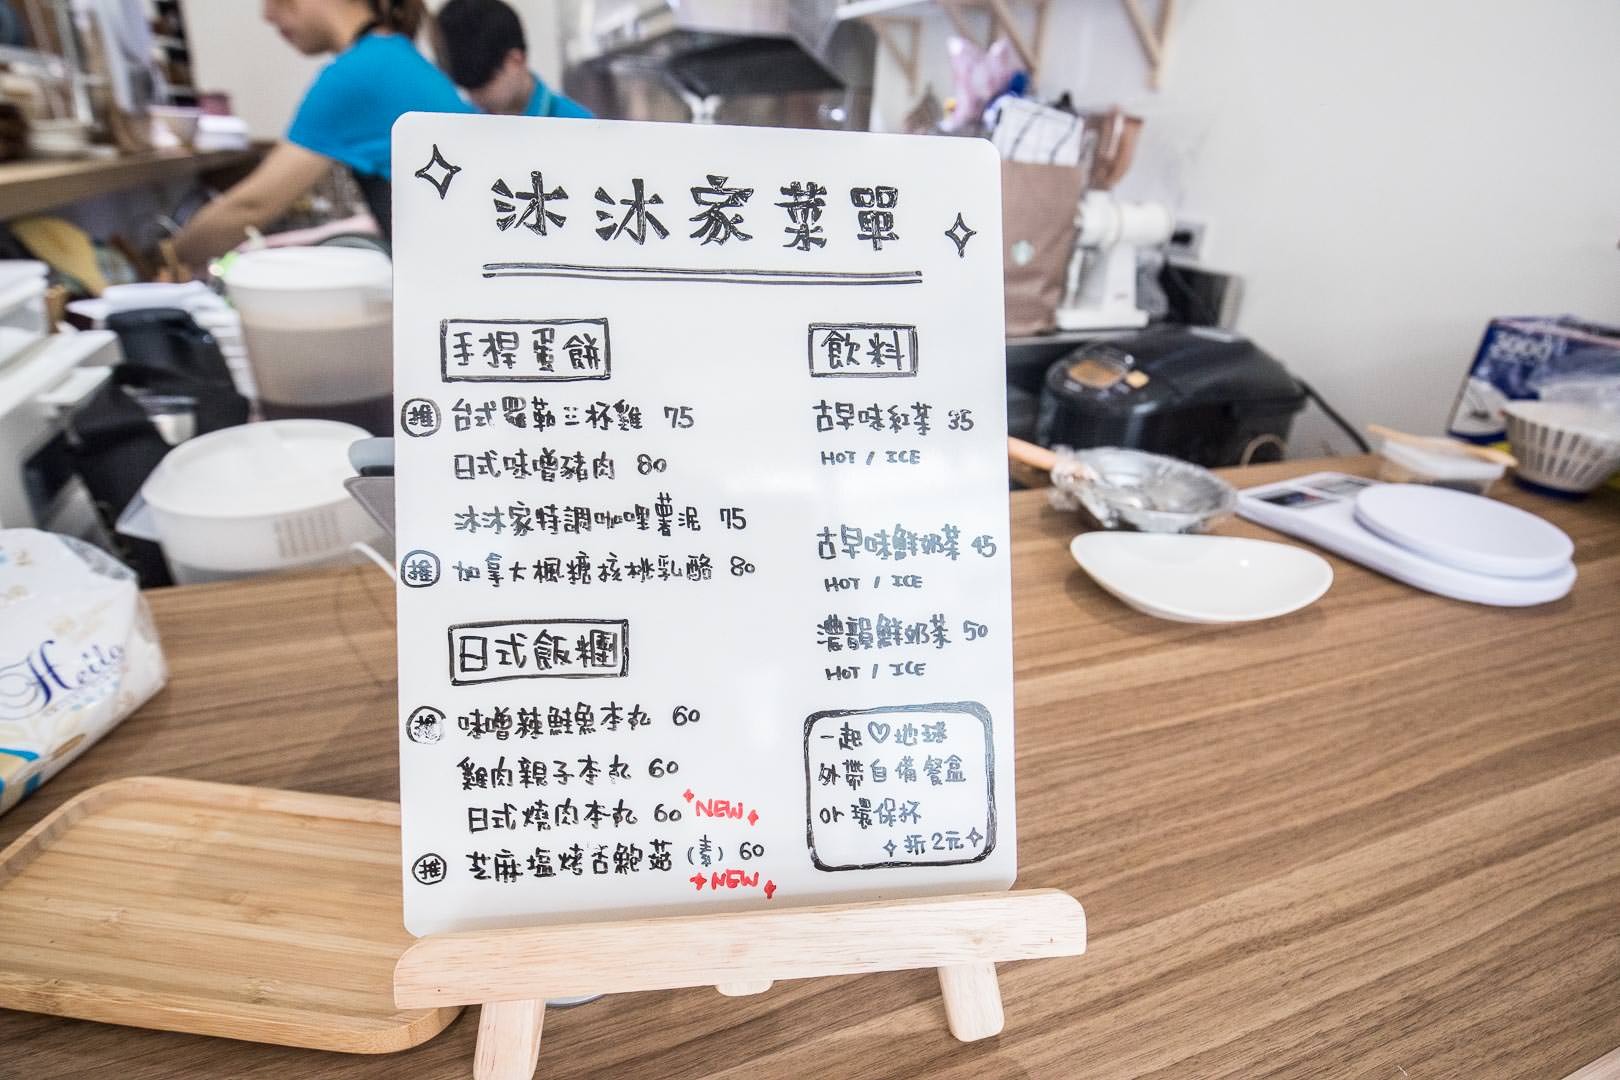 沐沐家菜單
手桿蛋餅
推 台式羅勒三杯雞 75
日式味噌豬肉 80
沐沐家特調咖哩薯泥 75
推 加拿大楓糖核桃乳酪 80
日式飯糰
推 味噌辣鮭魚本丸 60
雞肉親子本丸 60
日式燒肉本丸 60 NEW
推 芝麻塩烤杏鮑菇(素) 60
NEW
飲料
古早味紅茶 35
HOT / ICE
古早味鮮奶茶 45
HOT / ICE
濃韻鮮奶茶 50
HOT / ICE
一起♡地球
外帶自備餐盒
or 環保杯
折2元
Heilo